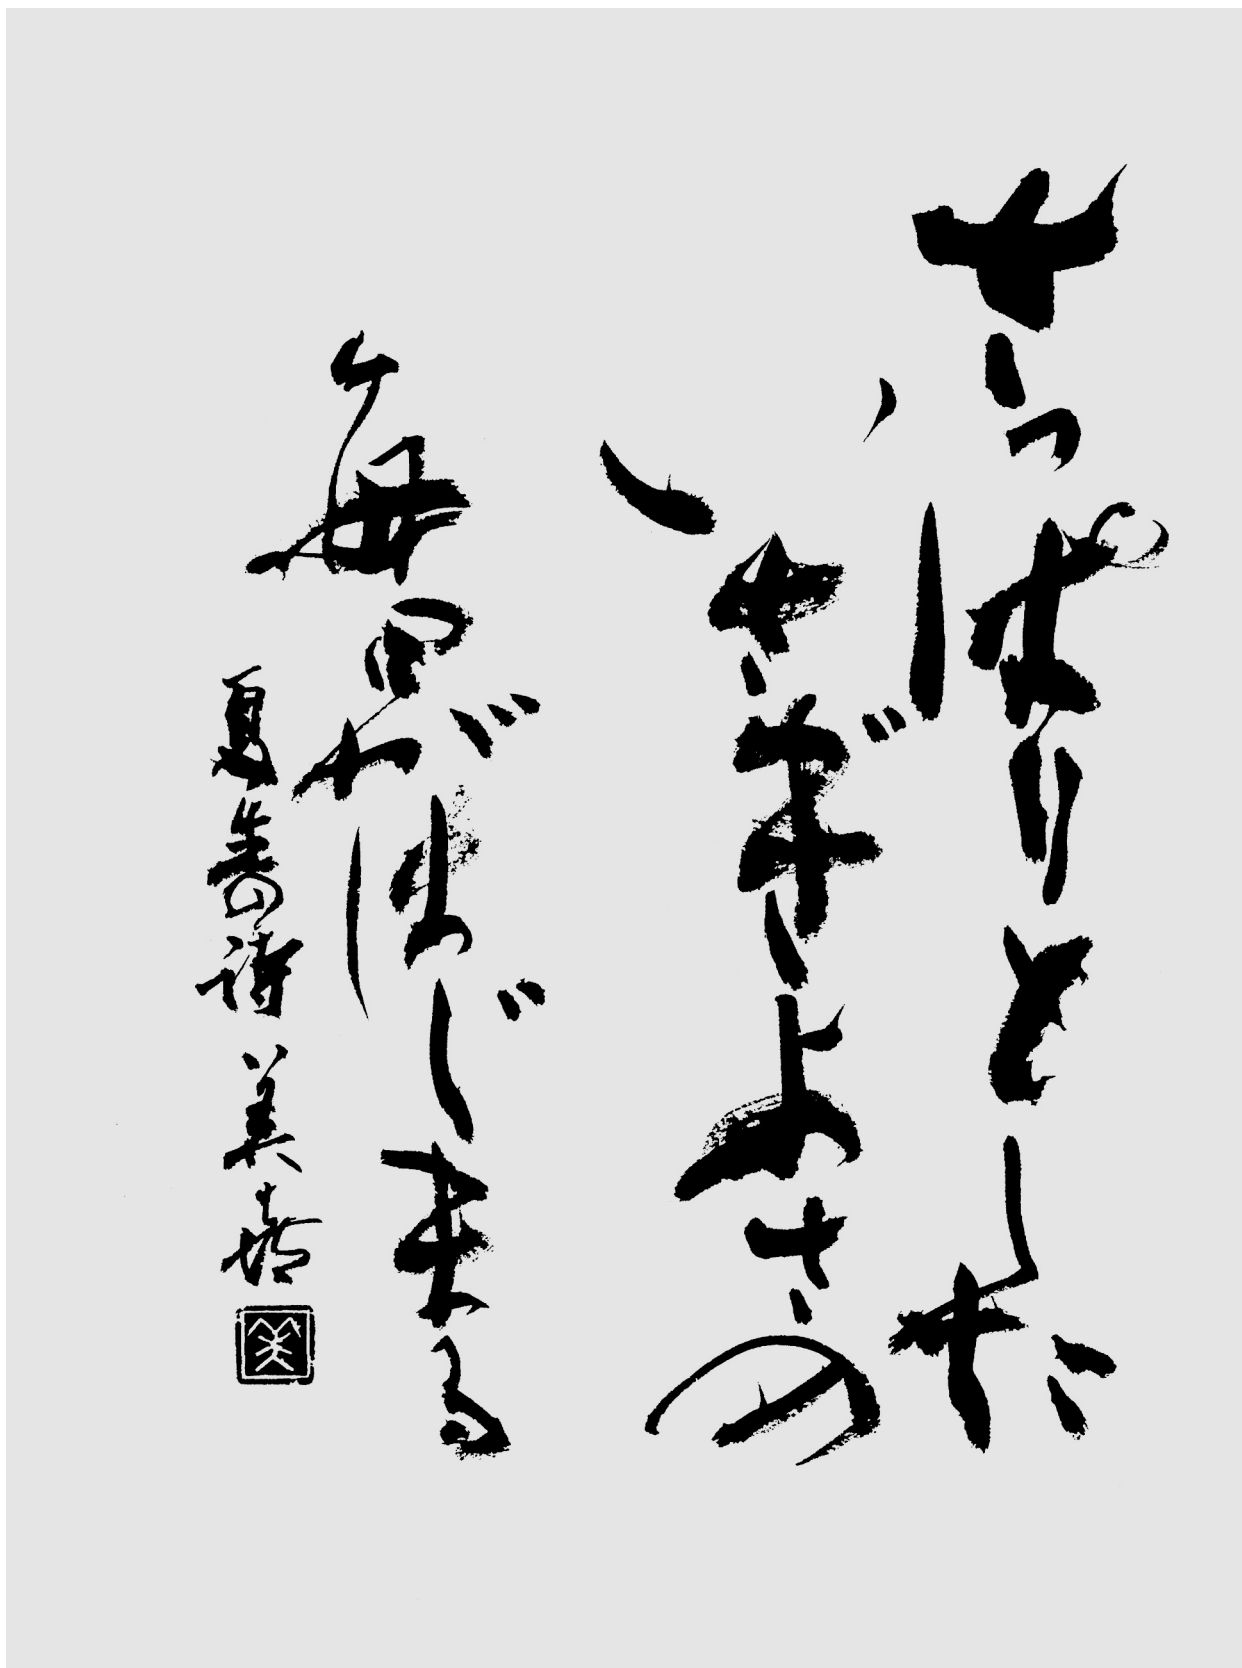 さっぱりとした
いさぎよさの
毎日がはじまる
夏 の詩 美